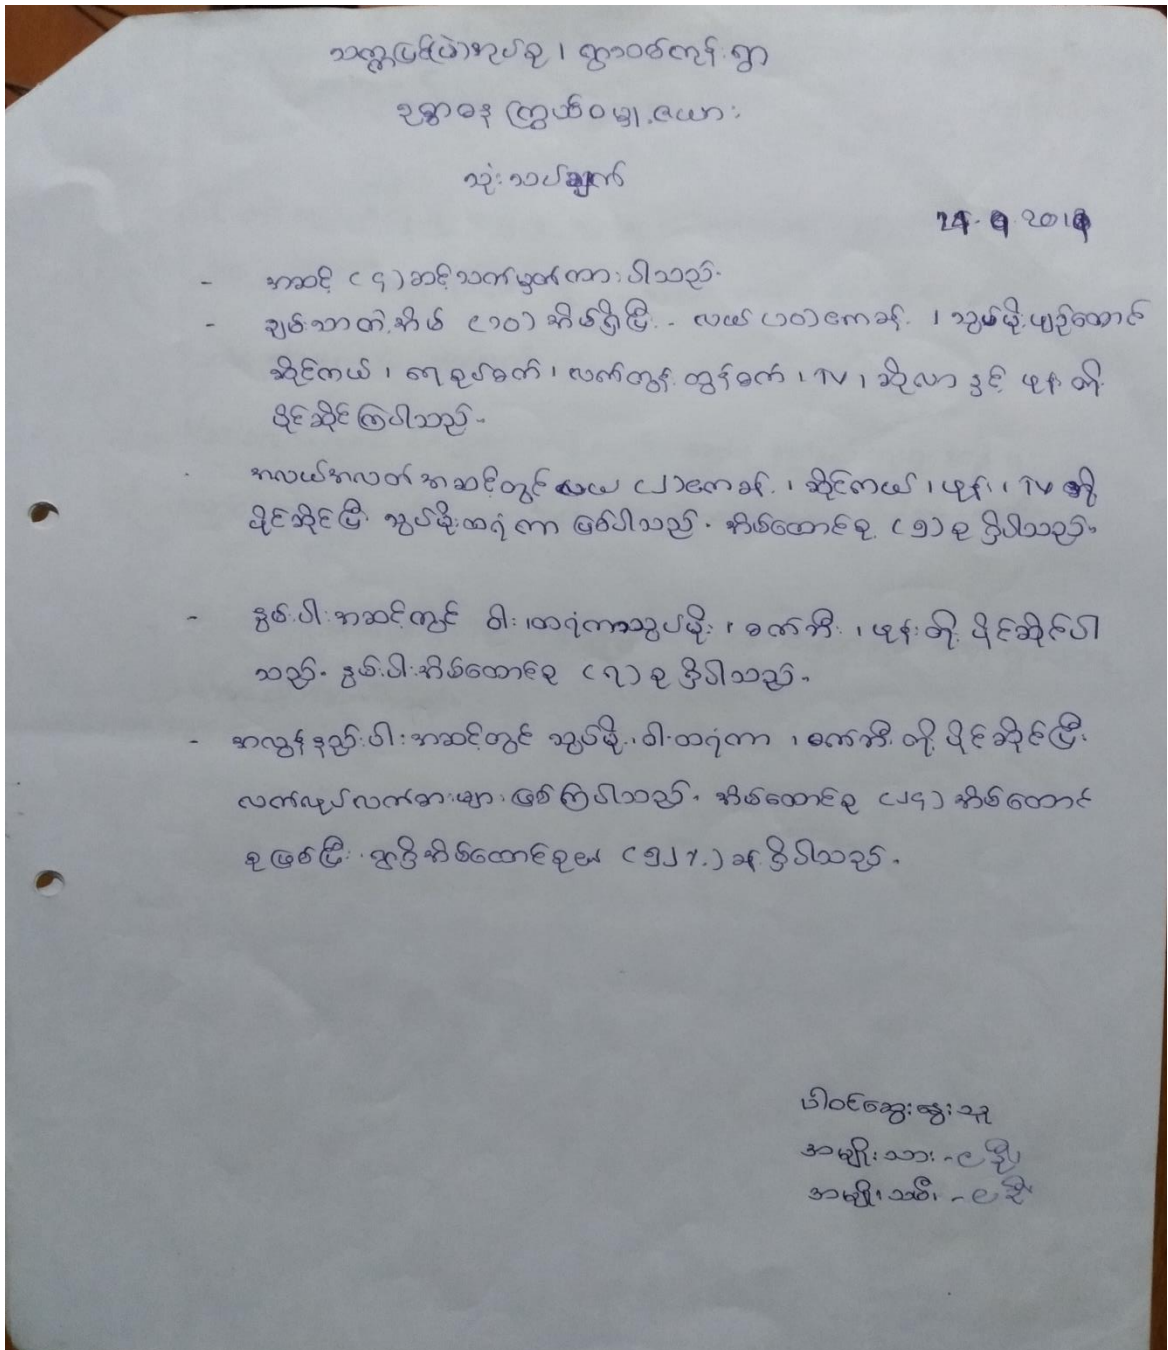 သက္ကမြစ်(ဖြဲ)အုပ်စု၊ ရွာဝစ်ကုန်းရွာ
ဥစ္စာဓန ကြွယ်ဝမှု ဇယား
သုံးသပ်ချက်
- အဆင့် (၄) ဆင့် သတ်မှတ်ထားပါသည်။
- ချမ်းသာတဲ့ အိမ် (၁၀) အိမ်ရှိပြီး - လယ် (၁၀) ဧကခန့်၊ သွပ်မိုးပျဉ်ထောင်
ဆိုင်ကယ်၊ ရေစုပ်စက်၊ လက်တွန်းထွန်စက်၊ TV၊ ဆိုလာ နှင့် ဖုန်းတို့
ပိုင်ဆိုင်ကြပါသည်။
အလယ်အလတ်အဆင့်တွင် လယ် (၂) ဧကခန့်၊ ဆိုင်ကယ်၊ ဖုန်း၊ TV တို့
ပိုင်ဆိုင်ပြီး သွပ်မိုးထရံကာ ဖြစ်ပါသည်။ အိမ်ထောင်စု (၅) စု ရှိပါသည်။
- နွမ်းပါးအဆင့်တွင် ဝါးထရံကာသွပ်မိုး၊ စက်ဘီး၊ ဖုန်းတို့ ပိုင်ဆိုင်ပါ
သည်။ နွမ်းပါးအိမ်ထောင်စု (၇) စု ရှိပါသည်။
- အလွန်နွမ်းပါးအဆင့်တွင် သွပ်မိုး၊ ဝါးထရံကာ၊ စက်ဘီးတို့ ပိုင်ဆိုင်ပြီး
လက်လုပ်လက်စားများ ဖြစ်ကြပါသည်။ အိမ်ထောင်စု (၂၄) အိမ်ထောင်
စုဖြစ်ပြီး ရွာရှိအိမ်ထောင်စု၏ (၅၂%) ခန့်ရှိပါသည်။
ပါဝင်ဆွေးနွေးသူ
အမျိုးသား - ၉ ဦး
အမျိုးသမီး - ၉ ဦး